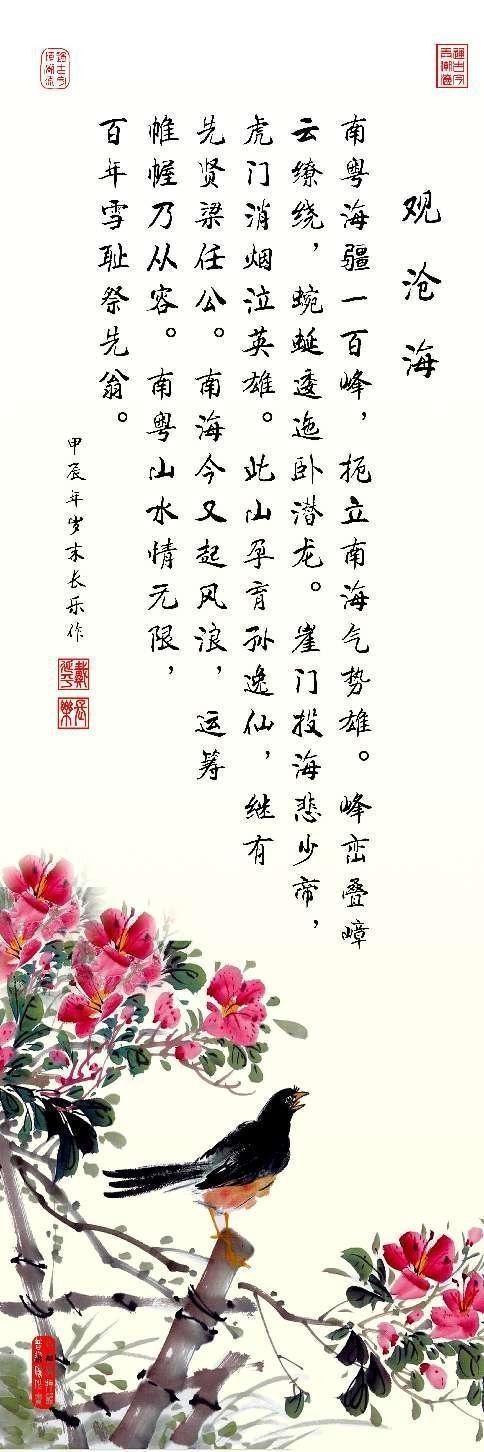 观沧海
南粤海疆一百峰，扼立南海气势雄。峰峦叠嶂
云缭绕，蜿蜒逶迤卧潜龙。崖门投海悲少帝，
虎门消烟泣英雄。此山孕育孙逸仙，继有
先贤梁任公。南海今又起风浪，运筹
帷幄乃从容。南粤山水情无限，
百年雪耻祭先翁。
甲辰年岁末长乐作
長樂